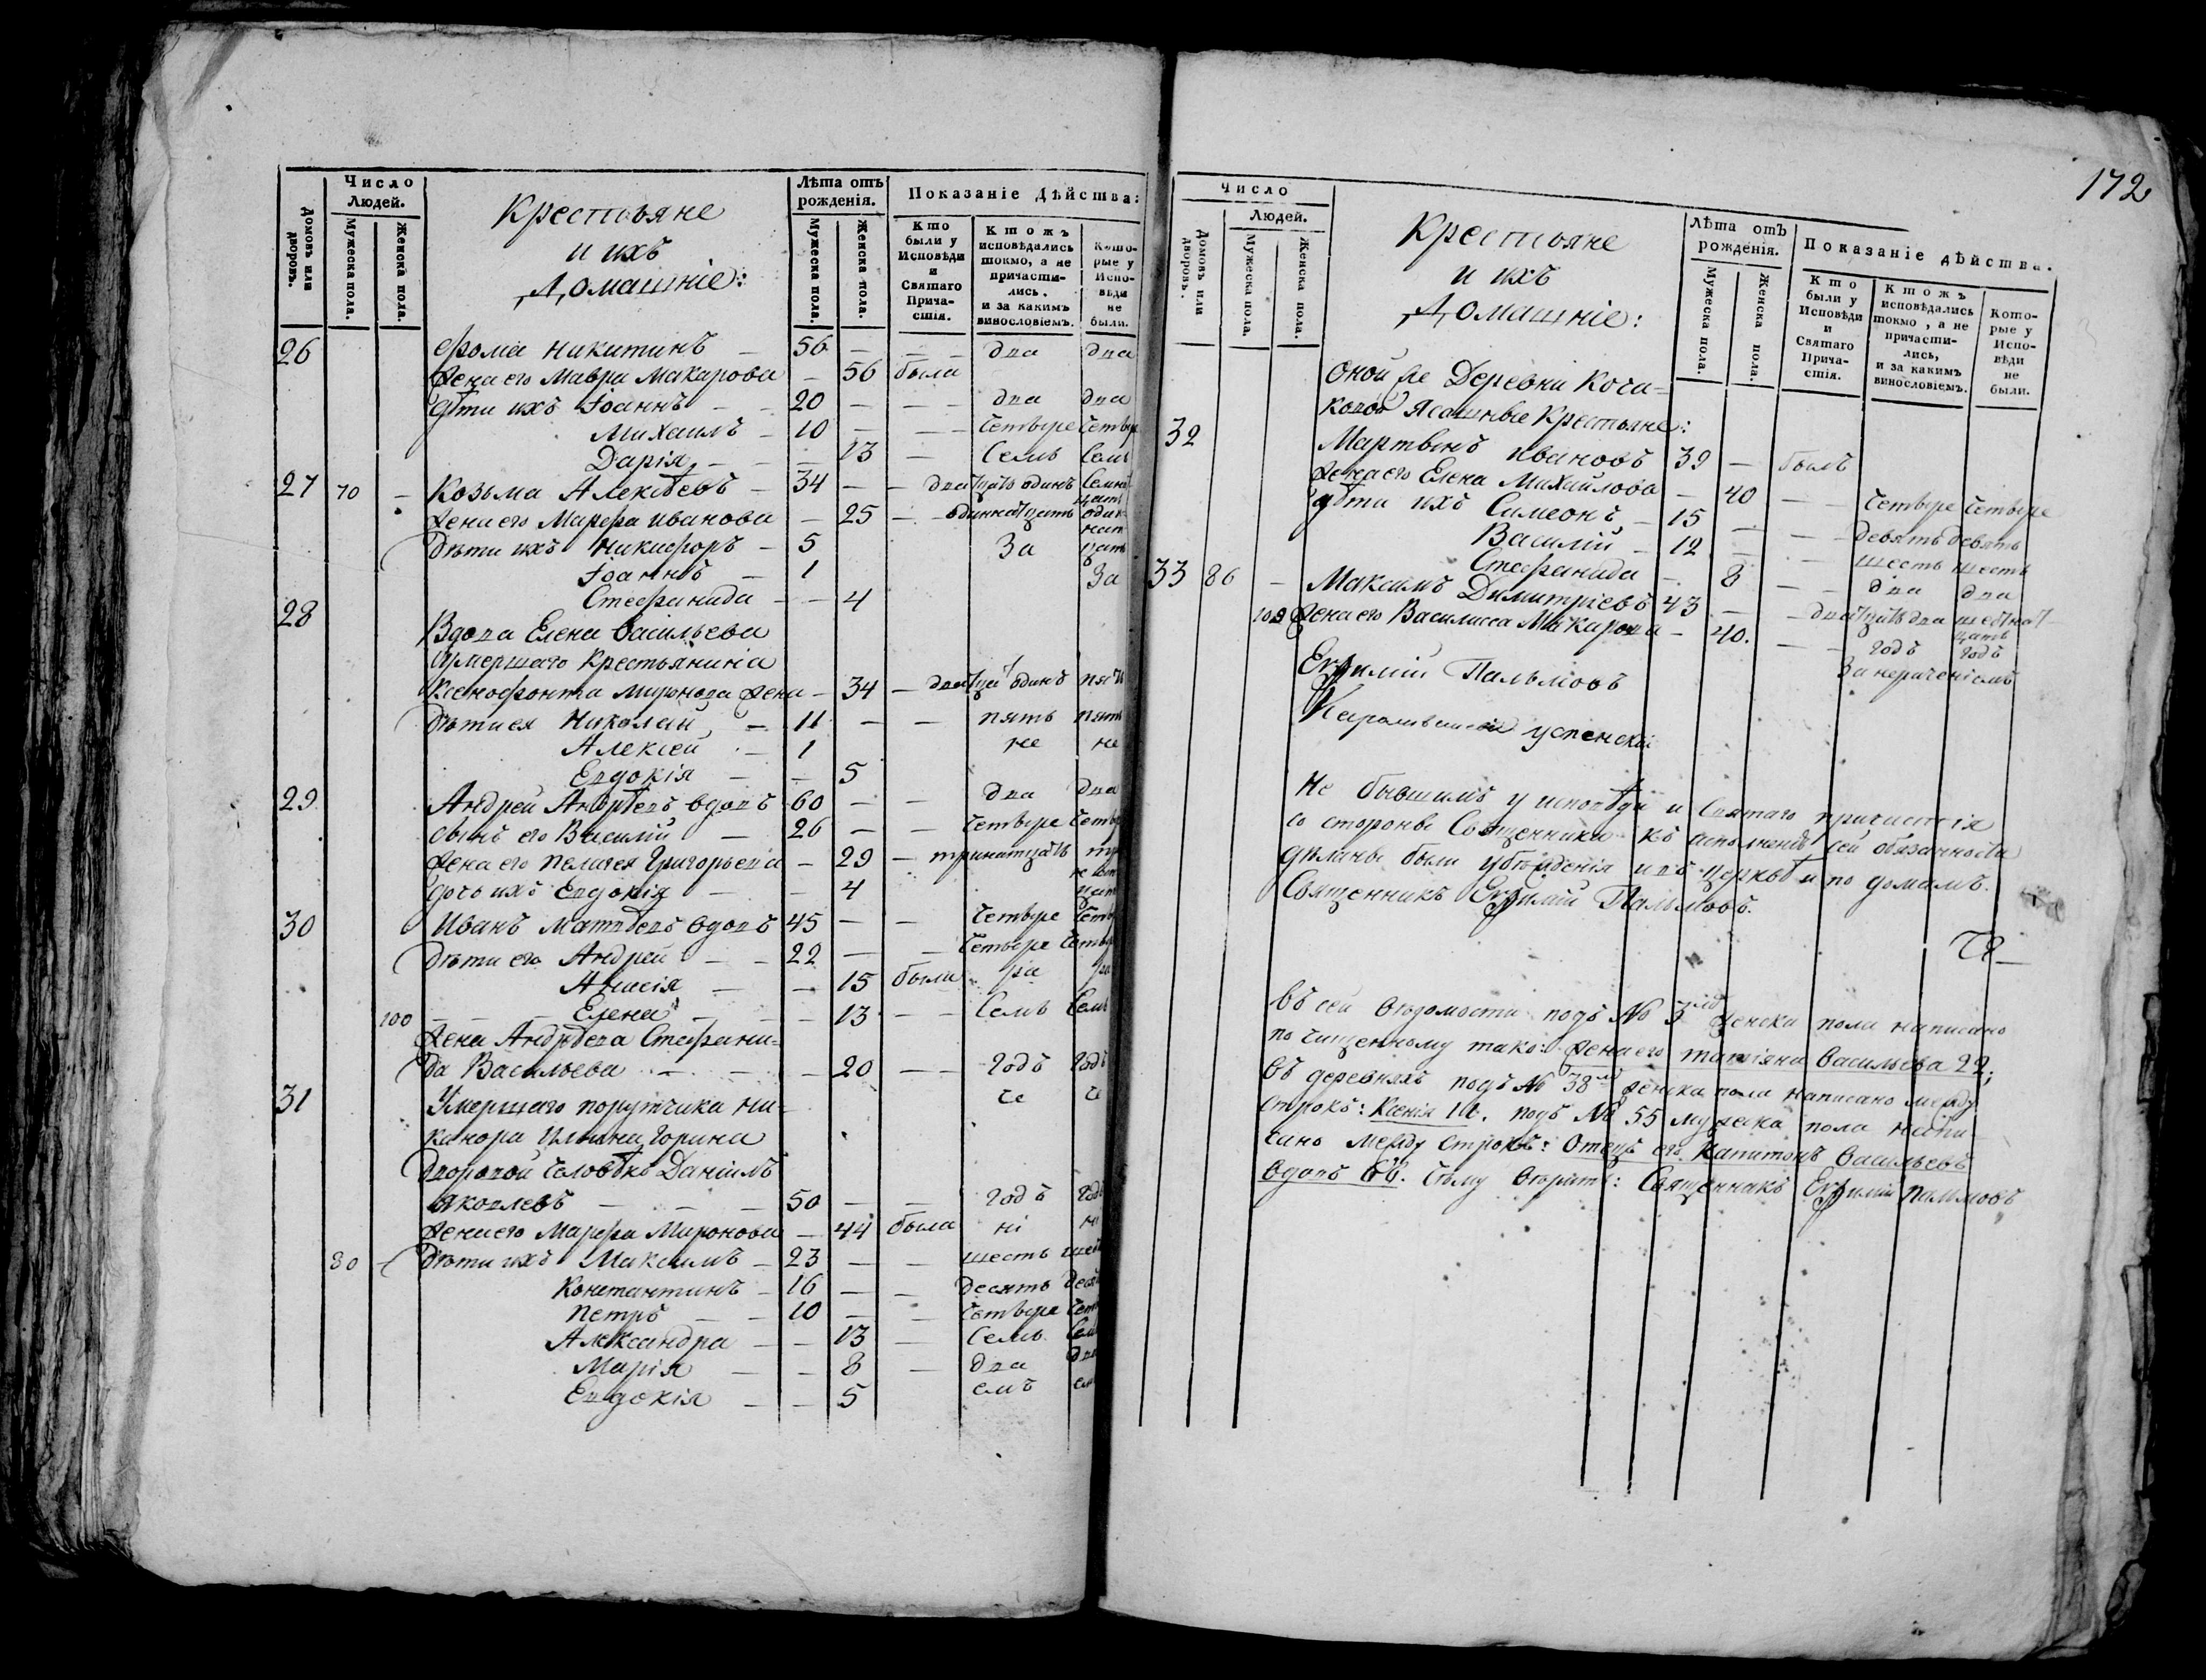 Число Людей.
Домовъ или дворовъ.
Мужеска пола.
Женска пола.
Крестьяне
и ихъ
Домашніе:
Лѣта отъ рожденія.
Мужеска пола.
Женска пола.
Показаніе Дѣйства:
Кто были у Исповѣди и Святаго Причастія.
Ктожъ исповѣдались токмо, а не причастились, и за какимъ винословіемъ.
Которые у Исповѣди не были.
26 Фома Никитинъ – 56 – – – два два
Жена его Мавра Макарова – 56 была
Дѣти ихъ Іоаннъ – – 20 – – – два два
Михаилъ – 10 – – – четыре четыре
Дарія – – – 13 – семь семь
27 70 – Козьма Алексѣевъ – 34 – – дватцать одинъ
Жена его Марѳа Иванова – 25 – – одиннатцать
Дѣти ихъ Никифоръ – 5 За
Іоаннъ – 1 За
Стефанида – – 4
28 Вдова Елена Васильева
Умершаго крестьянина
Ксенофонта Миронова жена – 34 – дватцать одинъ
Дѣти ея Николай – 11 – – пять пять
Алексей – 1 не не
Евдокія – – 5
29 Андрей Андрѣевъ вдовъ 60 – – два два
Сынъ его Василій – 26 – – четыре
Жена его Пелагея Григорьева – 29 – тринатцать
Дочь ихъ Евдокія – – 4
30 Иванъ Матвѣевъ вдовъ 45 – – четыре
Дѣти его Андрей – – 22 – – четыре
Анисія – – 15 была ра ра
100 – – – Елена – – – 13 – – семь семь
Жена Андрѣева Стефани-
да Васильева – – – 20 – – годъ годъ
31 Умершаго порутчика Ни- че че
канора Ильина Горина
Дворовой человѣкъ Даніилъ
Яковлевъ – – – 50 – – годъ годъ
Жена его Марѳа Миронова – 44 была ні ні
80 – Дѣти ихъ Максимъ – 23 – – шесть
Константинъ – 16 – – десять
Петръ – – 10 – – четыре
Александра – – 13 – семь
Марія – – 8 – два два
Евдокія – – 5 емъ
172
Число Людей.
Домовъ или дворовъ.
Мужеска пола.
Женска пола.
Крестьяне
и ихъ
Домашніе:
Лѣта отъ рожденія.
Мужеска пола.
Женска пола.
Показаніе дѣйства.
Кто были у Исповѣди и Святаго Причастія.
Ктожъ исповѣдались токмо, а не причастились, и за какимъ винословіемъ.
Которые у Исповѣди не были.
Оной же Деревни Коча-
ковой Ясашные Крестьяне:
32 Мартынъ Ивановъ 39 – былъ
Жена его Елена Михайлова – 40 – четыре четыре
Дѣти ихъ Симеонъ – 15 – – девять девять
Василій – 12 – – шесть шесть
Стефанида – 8 – – два два
33 86 – Максимъ Димитріевъ 43 – – дватцать два шестнатцать
109 Жена его Василисса Макарова – 40. – – годъ годъ
За нераченіемъ
Евфимій Пальмовъ
Успенскій
Не бывшимъ у исповѣди и Святаго причастія
со стороны Священника къ исполненію сей обязанности
дѣланы были убѣжденія и въ церквѣ и по домамъ.
Священникъ Евфимій Пальмовъ.
Въ сей Вѣдомости подъ № 3мъ женска пола написано
по чищенному тако: жена его Татіяна Васильева 22;
въ деревняхъ подъ № 38мъ женска пола написано между
строкъ: Ксенія 10. подъ № 55 мужеска пола напи-
сано между строкъ: Отецъ его Капитонъ Васильевъ
Вдовъ 66. Сему вѣрить: Священникъ Евфимій Пальмовъ